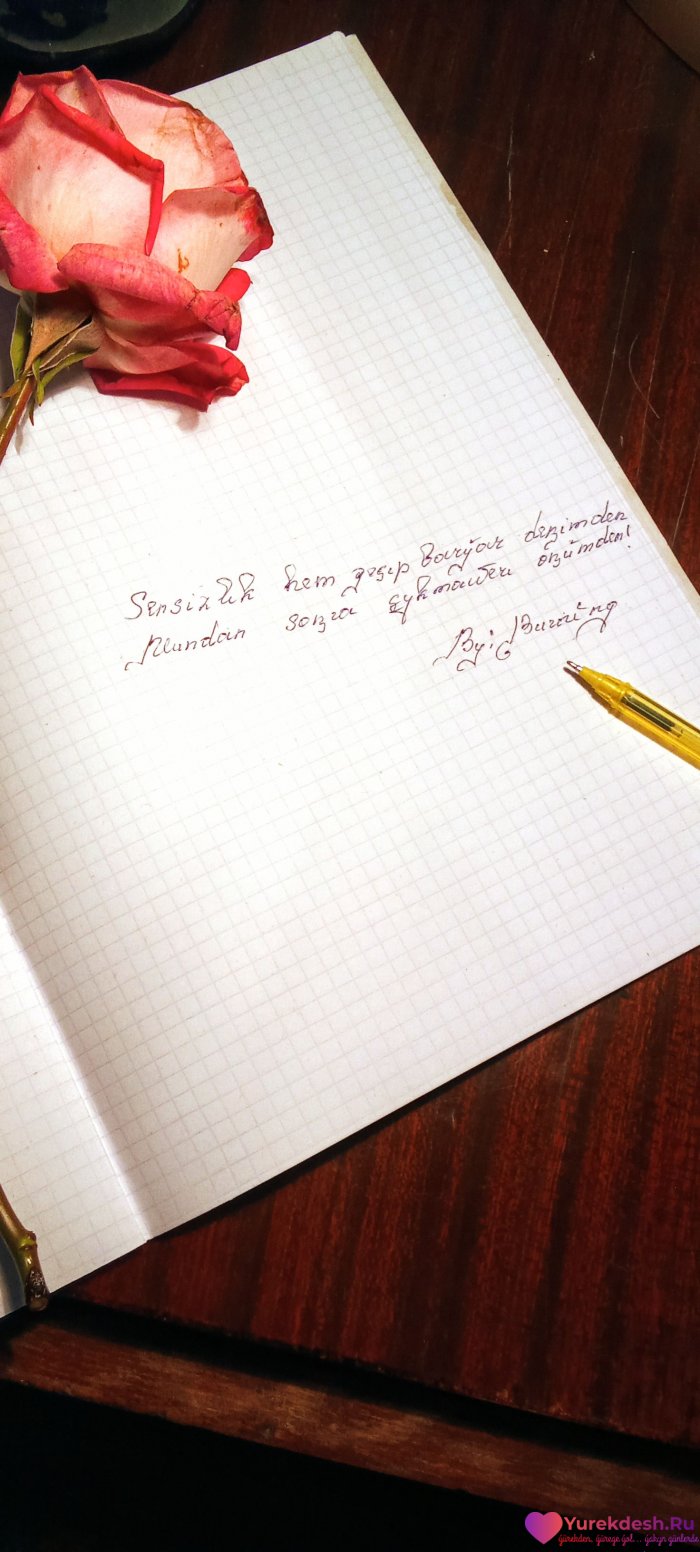 Sensizlik hem geçip barýar deňimden
Mundan soňra çykmaweri öňümden!
By:
Yurekdesh.Ru
ýürekden, ýürege ýol... ýakyn günlerde